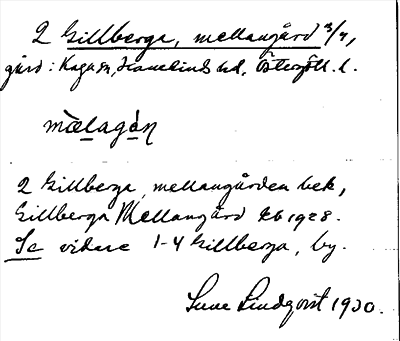 2 Gillberga, mellangård 3/4,
gård: Kaga sn, Hanekinds hd, Östergötl. l.
mælagå̀n
2 Gillberga, mellangården bek,
Gillberga Mellangård Eb 1928.
Se vidare 1-4 Gillberga, by.
Sune Lindqvist 1930.